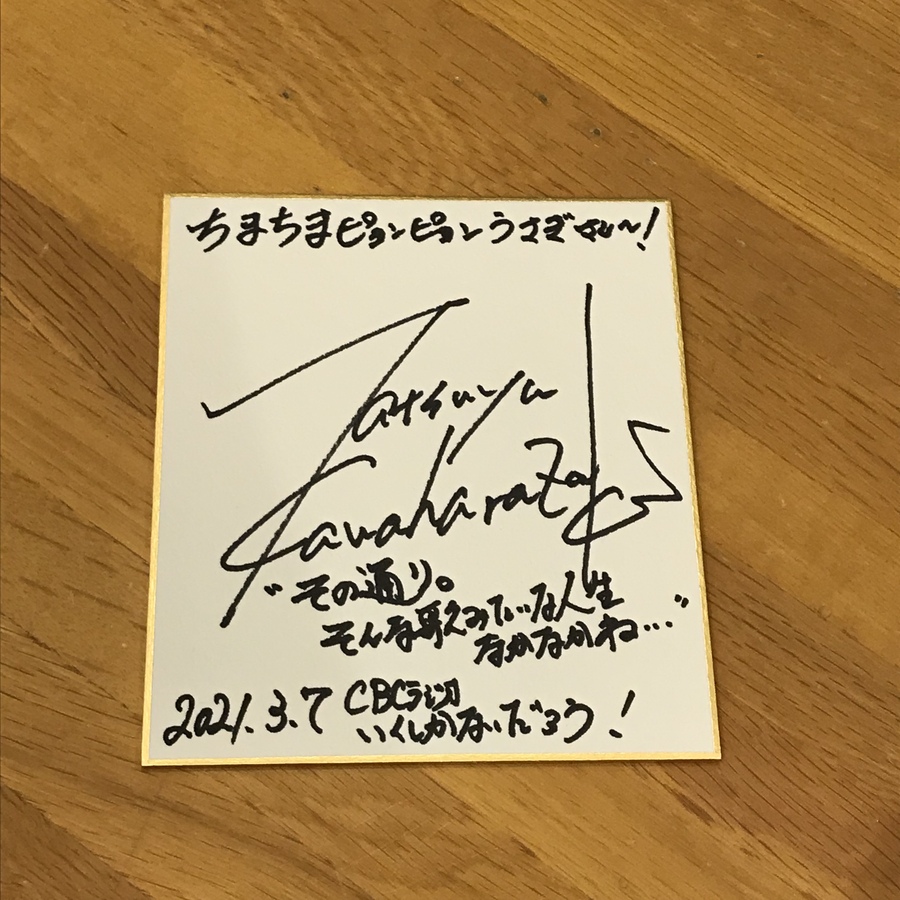 ちまちまピョンピョンうさぎさん〜!
Tatsuya
Kawaharazaki
"その通り。
そんな歌みたいな人生
なかなかね…"
2021.3.7 CBCラジオ
いくしかないだろう!